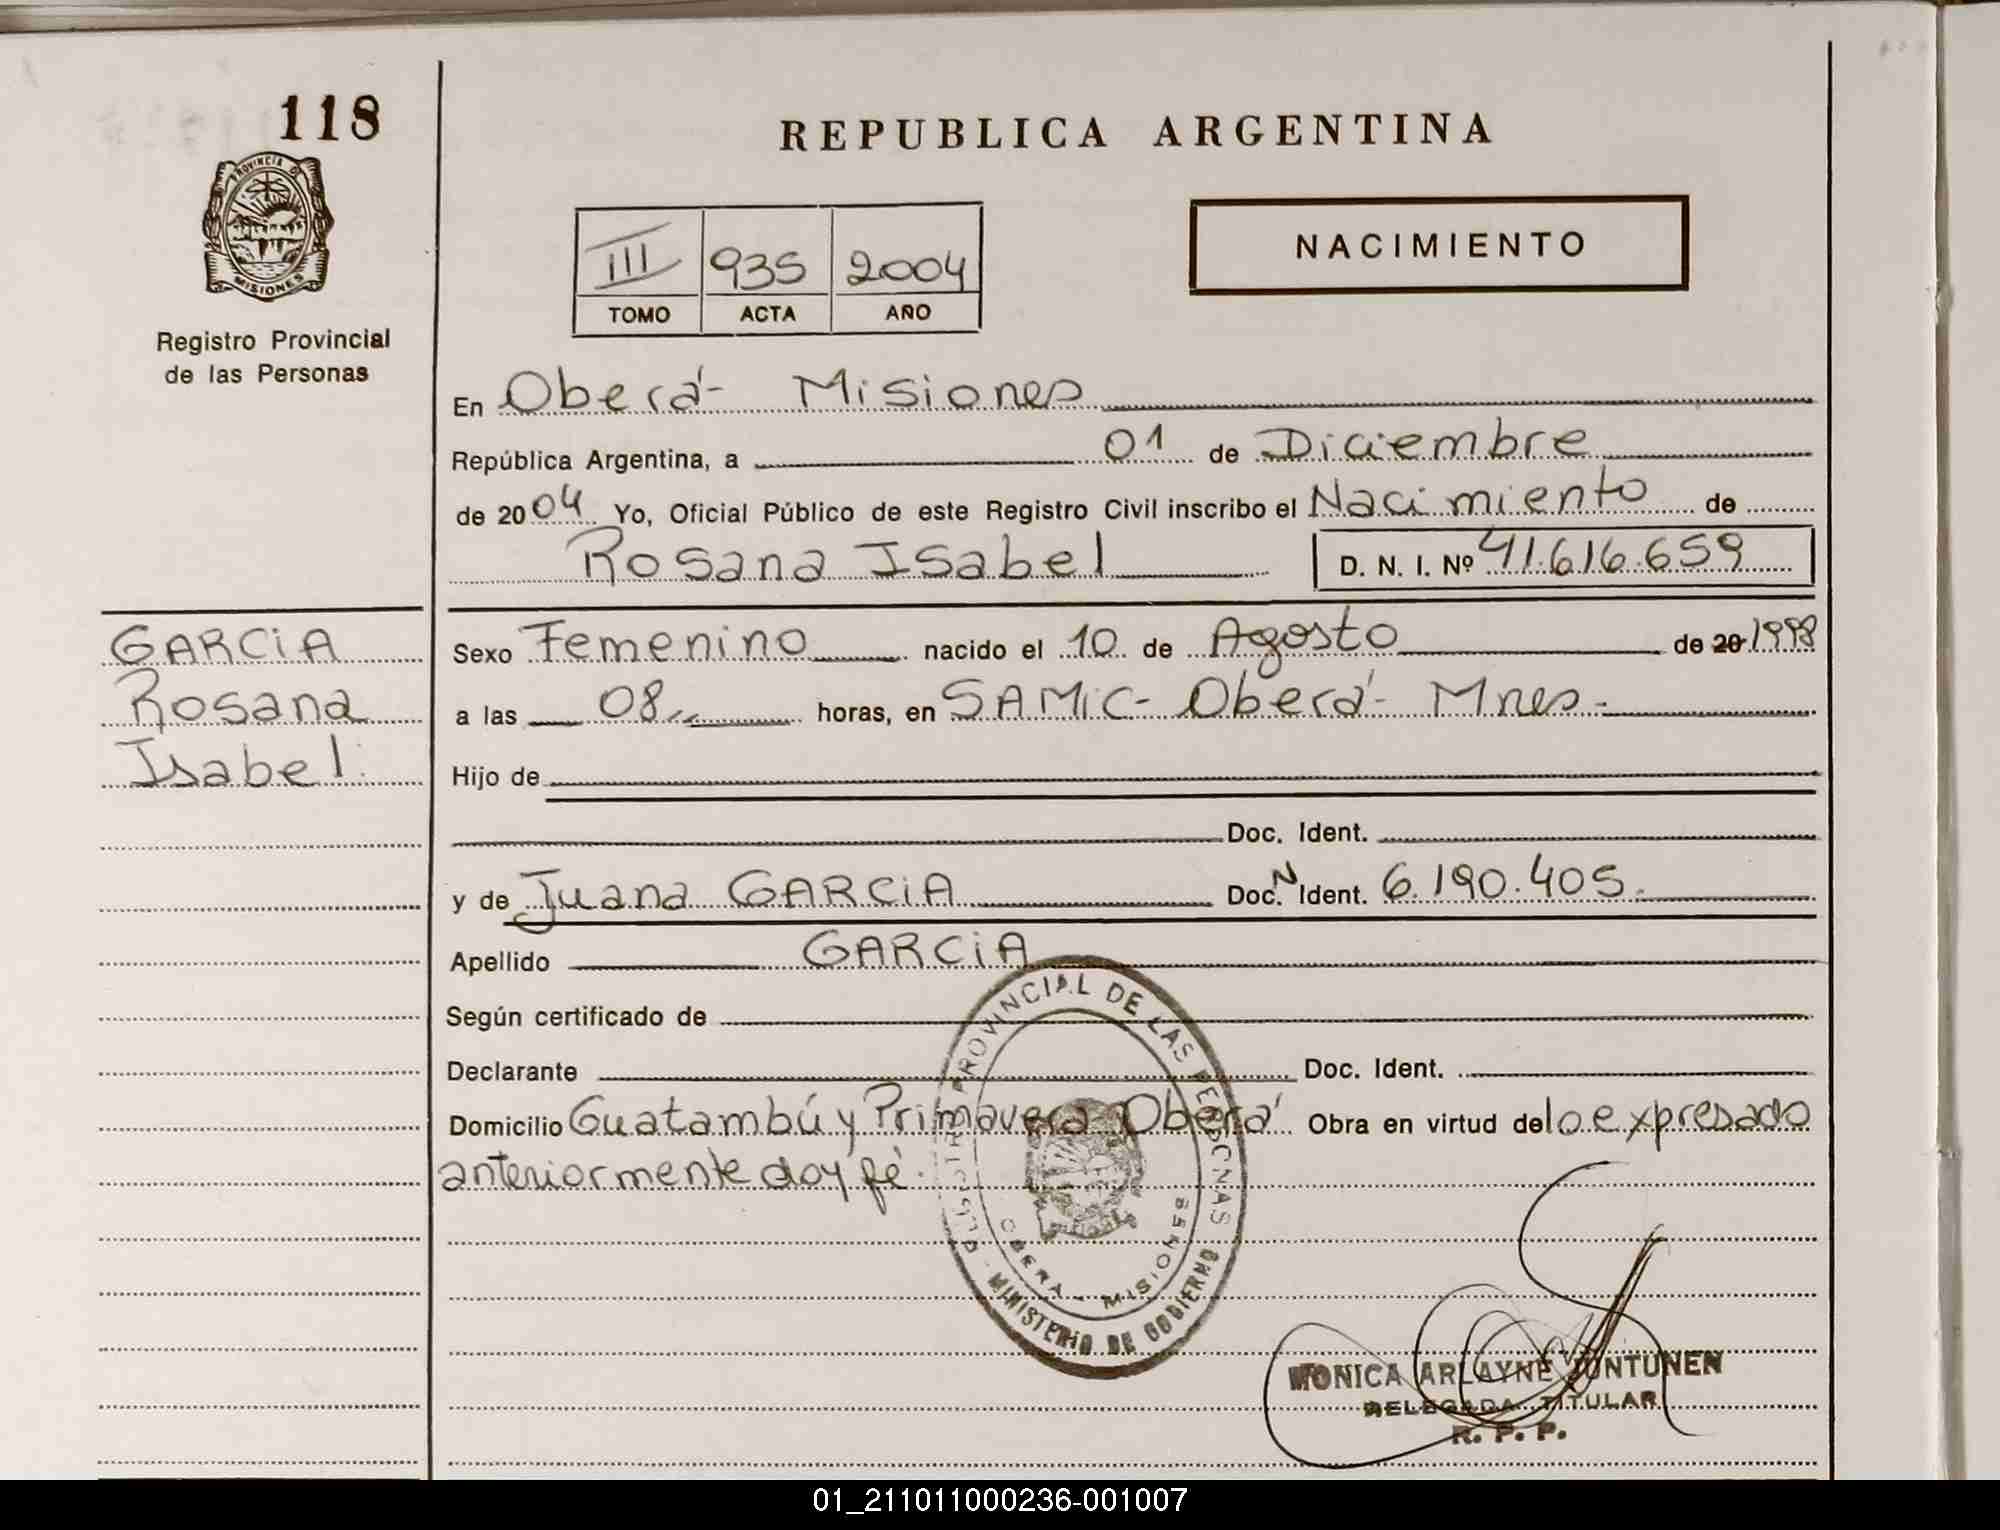 118
PROVINCIA DE
MISIONES
Registro Provincial
de las Personas
REPUBLICA ARGENTINA
III 935 2004
TOMO ACTA AÑO
NACIMIENTO
En Oberá- Misiones
República Argentina, a 01 de Diciembre
de 2004 Yo, Oficial Público de este Registro Civil inscribo el Nacimiento de
Rosana Isabel D. N. I. Nº 41.616.659
GARCiA
Rosana
Isabel.
Sexo Femenino nacido el 10 de Agosto de 20 1998
a las 08,, horas, en SAMiC- Oberá- Mnes-
Hijo de
Doc. Ident.
y de Juana GARCiA Doc. N Ident. 6.190.405.
Apellido GARCiA
Según certificado de
Declarante Doc. Ident.
Domicilio Guatambú y Primavera Oberá Obra en virtud de lo expresado
anteriormente doy fé.
PROVINCIAL DE LAS PERSONAS
OBERA - MISIONES
MINISTERIO DE GOBIERNO
MONICA ARLAYNE JUNTUNEN
DELEGADA TITULAR
R. P. P.
01_211011000236-001007